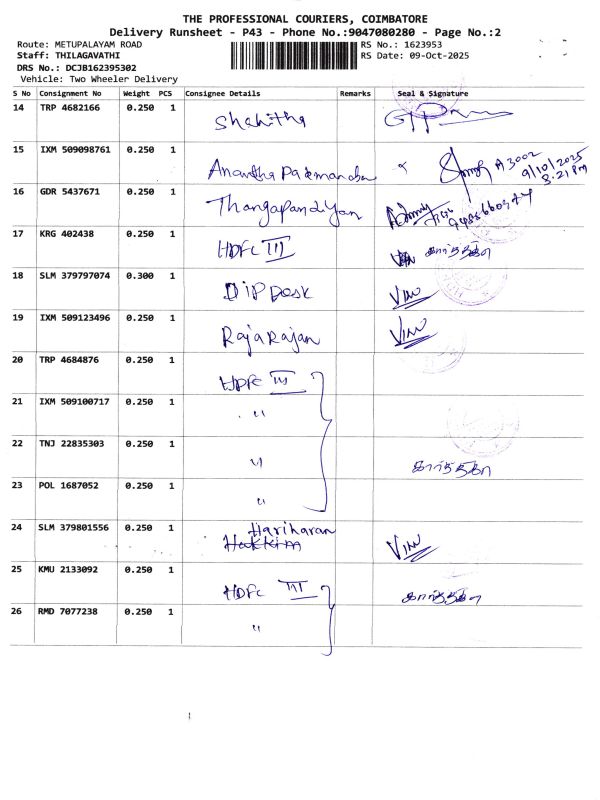 THE PROFESSIONAL COURIERS, COIMBATORE
Delivery Runsheet - P43 - Phone No.:9047080280 - Page No.:2
Route: METUPALAYAM ROAD RS No.: 1623953
Staff: THILAGAVATHI RS Date: 09-Oct-2025
DRS No.: DCJB162395302
Vehicle: Two Wheeler Delivery
S No Consignment No Weight PCS Consignee Details Remarks Seal & Signature
14 TRP 4682166 0.250 1 Shahitha
15 IXM 509098761 0.250 1 Anantha Padmanaba A3002
9/10/2025
3:21 PM
16 GDR 5437671 0.250 1 Thangapandiyan
17 KRG 402438 0.250 1 HDFC III கார்த்திகா
18 SLM 379797074 0.300 1 DIP Desk
19 IXM 509123496 0.250 1 Rajarajan
20 TRP 4684876 0.250 1 HDFC III
21 IXM 509100717 0.250 1 "
22 TNJ 22835303 0.250 1 " கார்த்திகா
23 POL 1687052 0.250 1 "
24 SLM 379801556 0.250 1 Hariharan
Hakkim
25 KMU 2133092 0.250 1 HDFC III கார்த்திகா
26 RMD 7077238 0.250 1 "